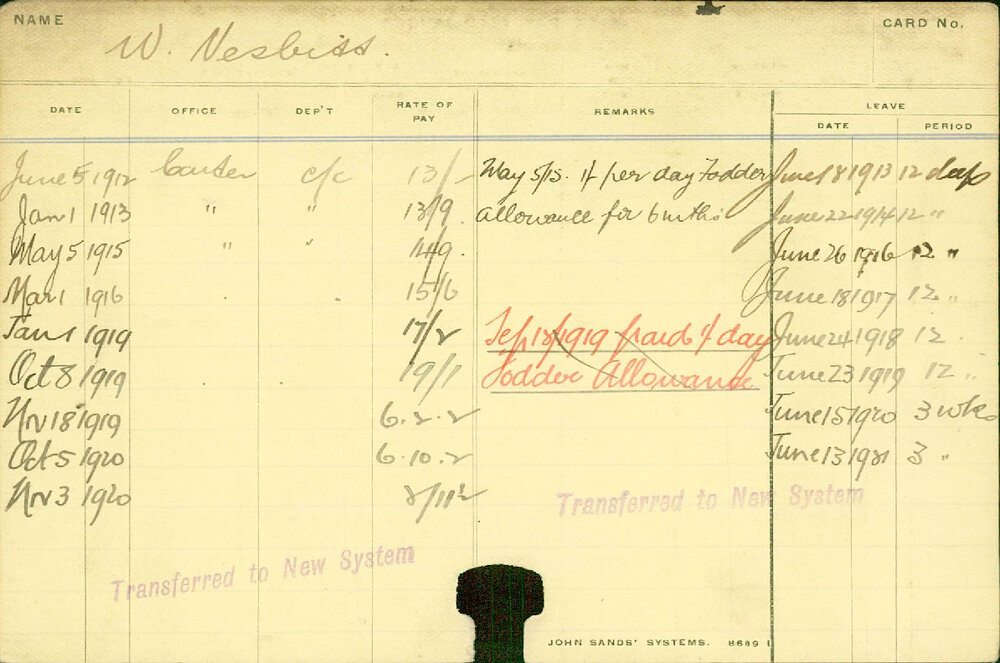 NAME
CARD No.
W. Nesbitt.
DATE OFFICE DEP'T RATE OF PAY REMARKS LEAVE
DATE PERIOD
June 5 1912 Carter c/c 13/- May 5/15. 1/ per day Fodder June 18 1913 12 days
Jan 1 1913 " " 13/9 allowance for 6 mths June 22 1914 12 "
May 5 1915 " " 14/9 June 26 1916 12 "
Mar 1 1916 . . 15/6 June 18 1917 12 "
Jan 1 1919 17/2 Sep 18/1919 paid 1/ day June 24 1918 12 .
Oct 8 1919 . . 19/1 Fodder Allowance June 23 1919 12 "
Nov 18 1919 6.2.2 June 15 1920 3 wks
Oct 5 1920 6.10.2 June 13 1921 3 "
Nov 3 1920
Transferred to New System
Transferred to New System
JOHN SANDS' SYSTEMS. 8689